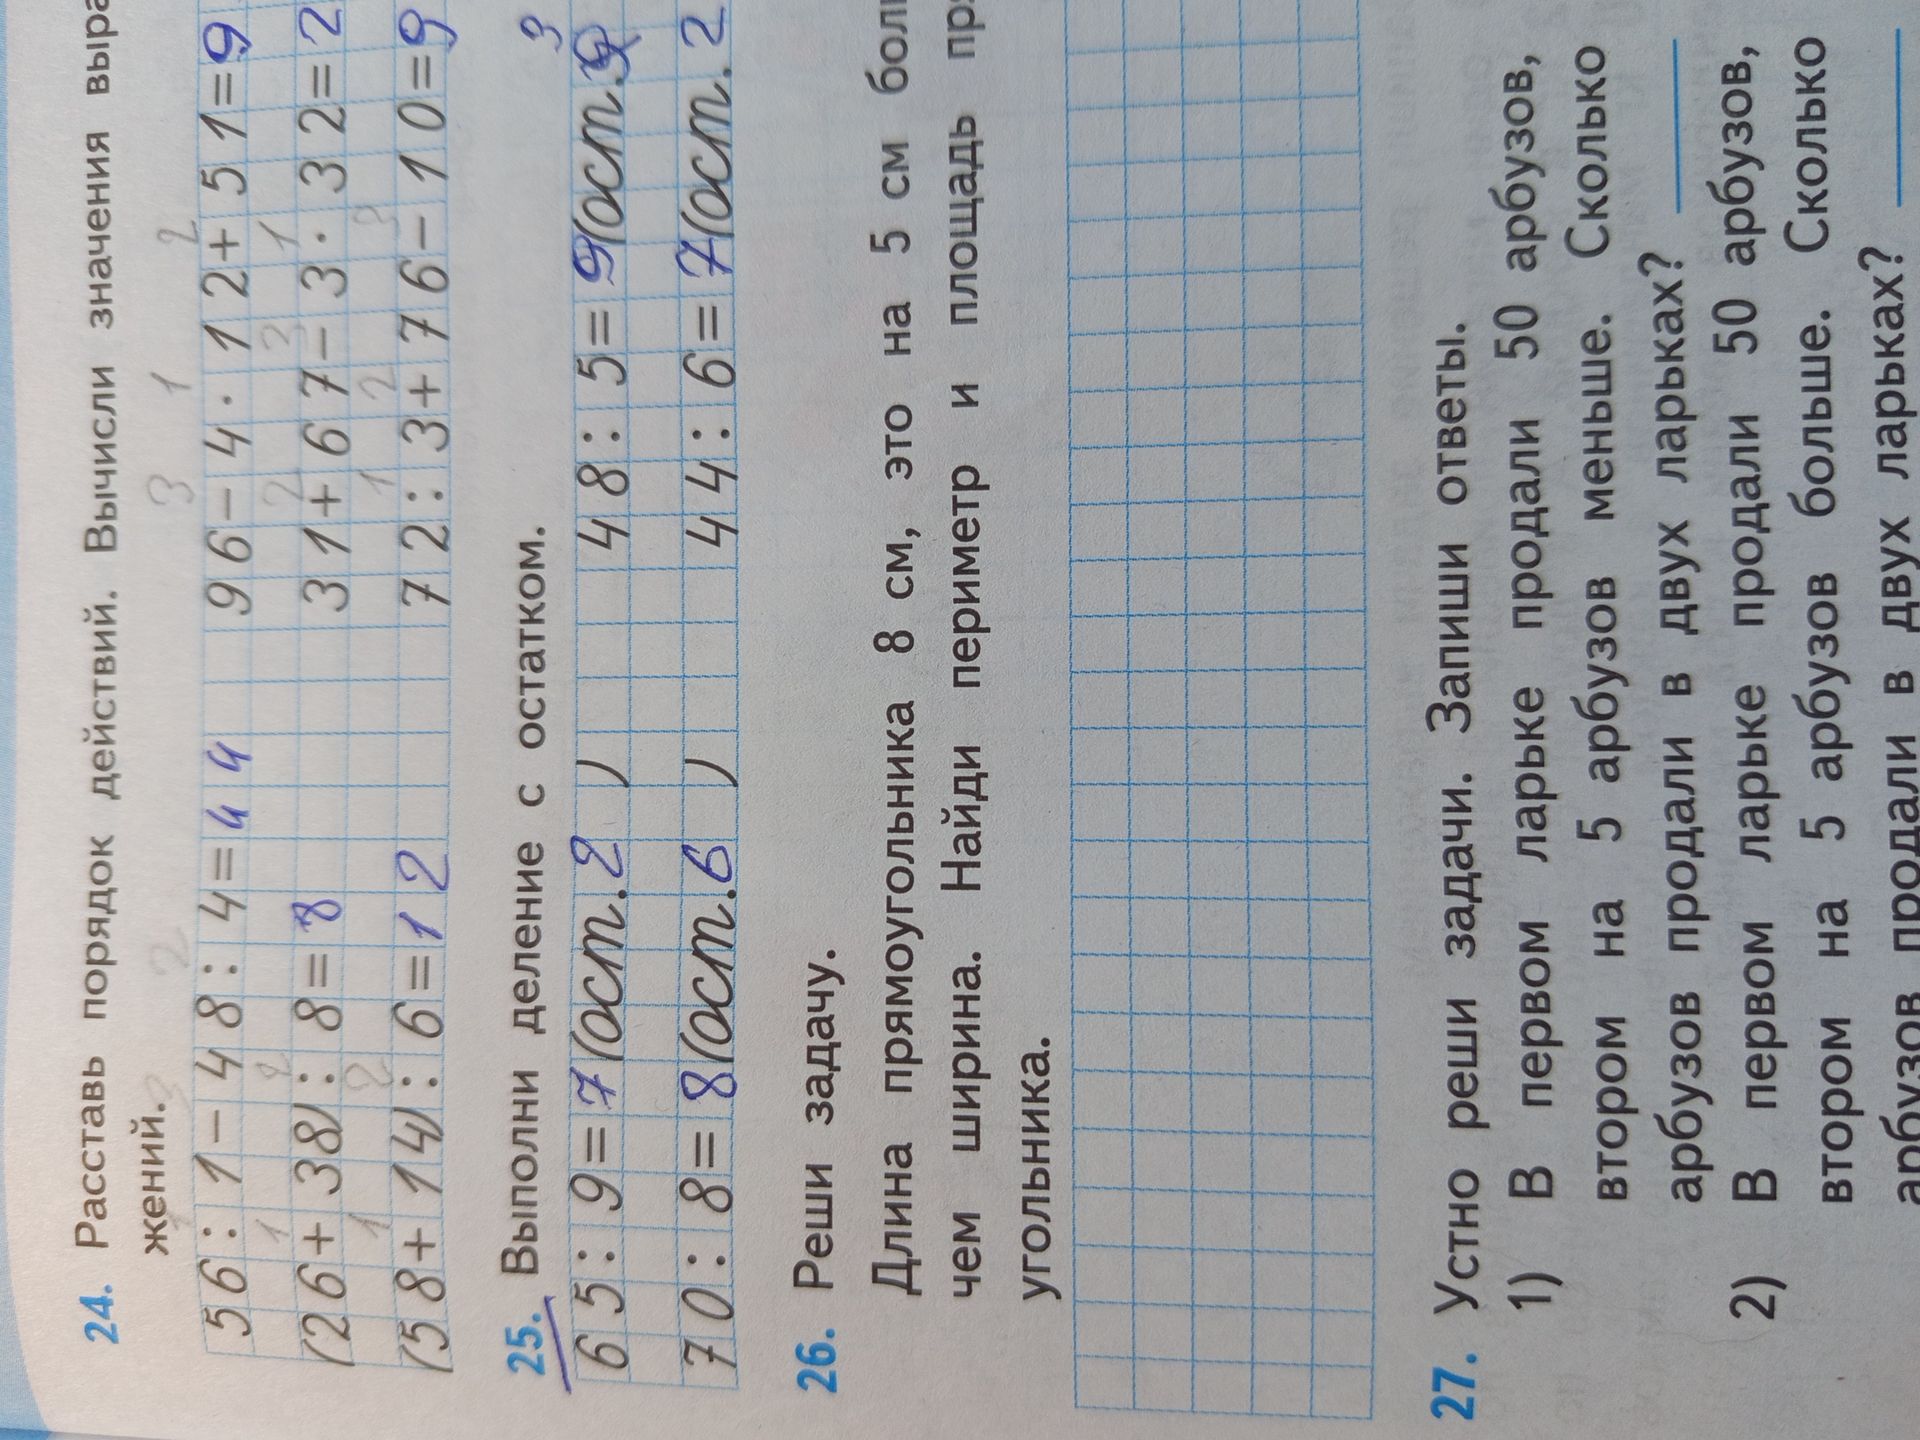 24. Расставь порядок действий. Вычисли значения выра
жений.
3 2 3 1 2
56:1-48:4=44 96-4·12+51=9
1 2 2 3 1
(26+38):8=8 31+67-3·32=2
1 2 1 2 3
(58+14):6=12 72:3+76-10=9
25. Выполни деление с остатком.
3
65:9=7(ост.2 ) 48:5=9(ост.
70:8=8(ост.6 ) 44:6=7(ост.2
26. Реши задачу.
Длина прямоугольника 8 см, это на 5 см бол
чем ширина. Найди периметр и площадь пр
угольника.
27. Устно реши задачи. Запиши ответы.
1) В первом ларьке продали 50 арбузов,
втором на 5 арбузов меньше. Сколько
арбузов продали в двух ларьках?
2) В первом ларьке продали 50 арбузов,
втором на 5 арбузов больше. Сколько
арбузов продали в двух ларьках?